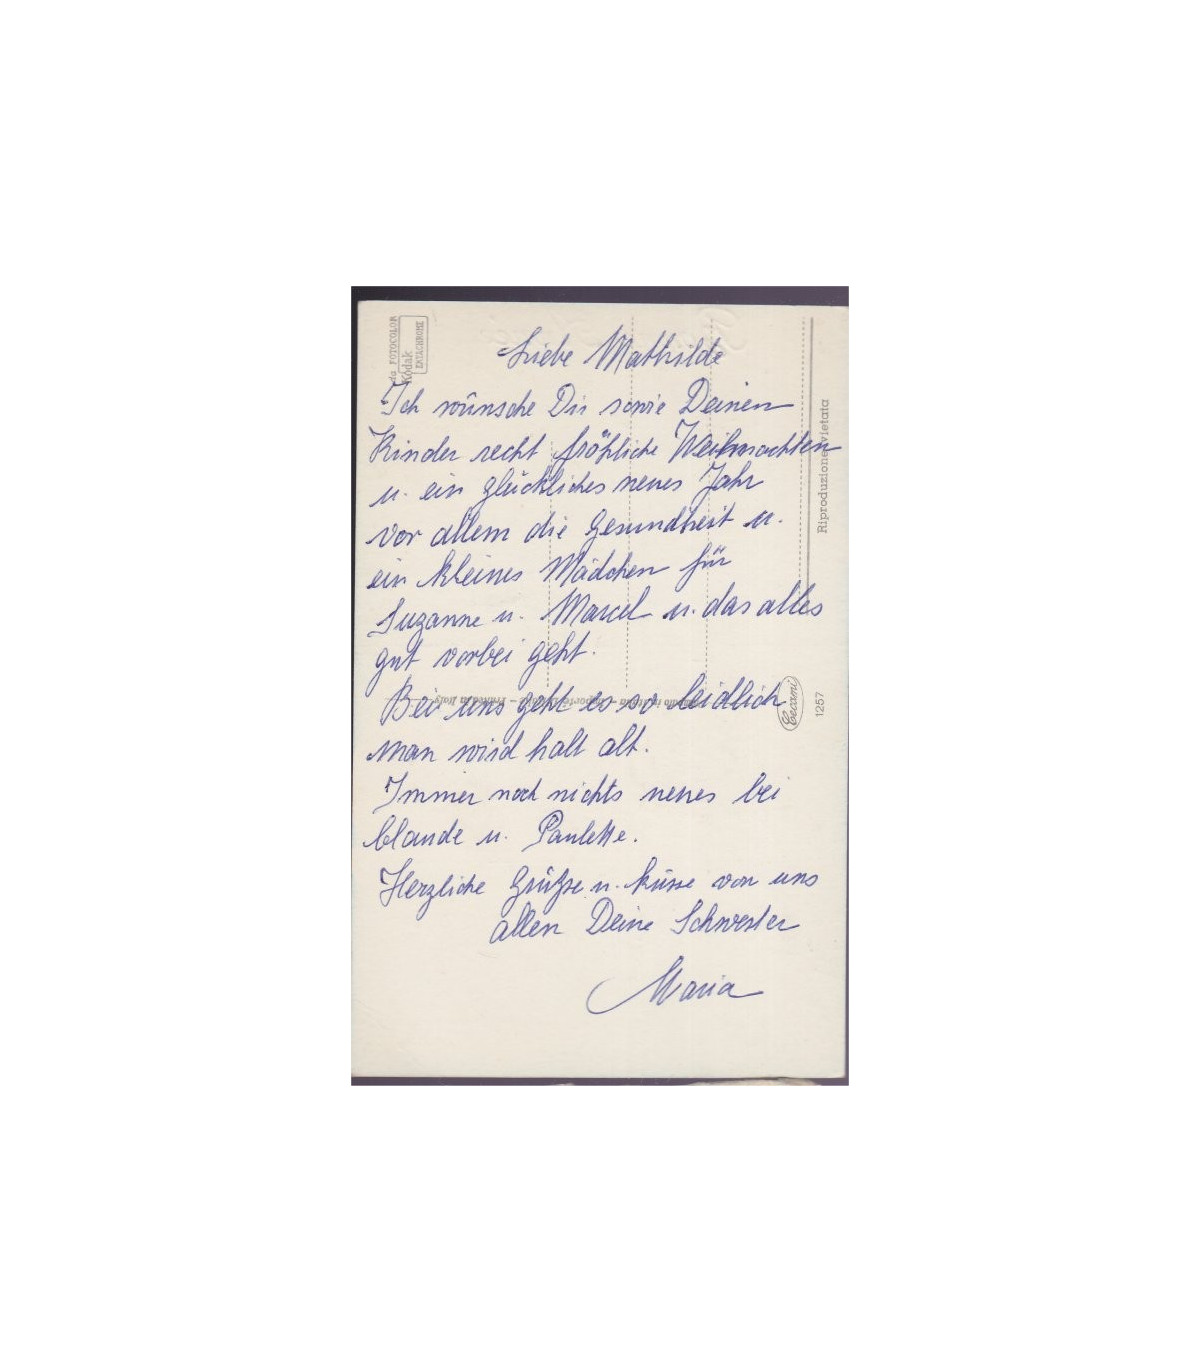 Liebe Mathilde
Ich wünsche Dir sowie Deinen
Kinder recht fröhliche Weihnachten
u. ein glückliches neues Jahr
vor allem die Gesundheit u.
ein kleines Mädchen für
Suzanne u. Marcel u. das alles
gut vorbei geht.
Bei uns geht es so leidlich
man wird halt alt.
Immer noch nichts neues bei
Claude u. Paulette.
Herzliche Grüße u. Küsse von uns
allen Deine Schwester
Maria
da FOTOCOLOR
Kodak
EKTACHROME
Riproduzione vietata
Cecami
1257
Printed in Italy